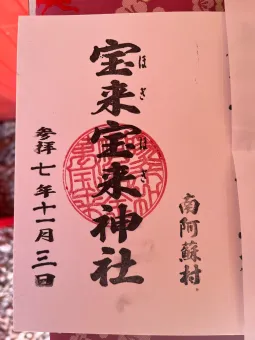 南阿蘇村
宝来宝来神社
ほぎほぎ
参拝 七年十一月三日